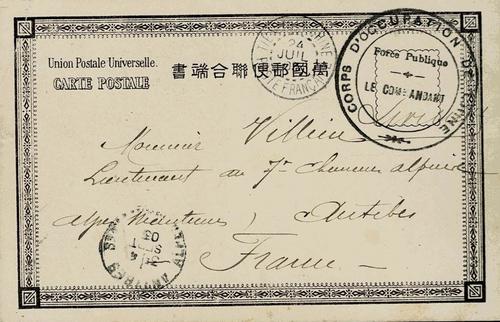 Union Postale Universelle.
CARTE POSTALE
書端合聯便郵國萬
24
JUIL
CORPS D'OCCUPATION DE CHINE
Force Publique
LE COMMANDANT
Monsieur Villein
Lieutenant au 7e chasseurs alpins
Alpes Maritimes) Antibes
France
ANTIBES
03